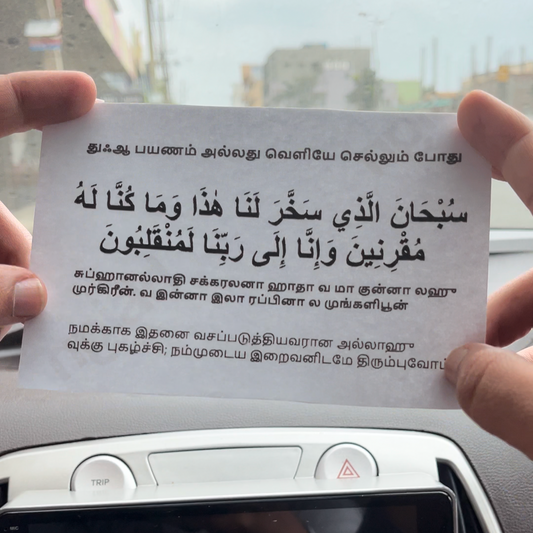 துஃஆ பயணம் அல்லது வெளியே செல்லும் போது
سُبْحَانَ الَّذِي سَخَّرَ لَنَا هَٰذَا وَمَا كُنَّا لَهُ
مُقْرِنِينَ وَإِنَّا إِلَى رَبِّنَا لَمُنْقَلِبُونَ
சுப்ஹானல்லாதி சக்கரலனா ஹாதா வ மா குன்னா லஹு
முர்கிரீன். வ இன்னா இலா ரப்பினா ல முங்களிபூன்
நமக்காக இதனை வசப்படுத்தியவரான அல்லாஹு
வுக்கு புகழ்ச்சி; நம்முடைய இறைவனிடமே திரும்புவோம்
TRIP
MIC